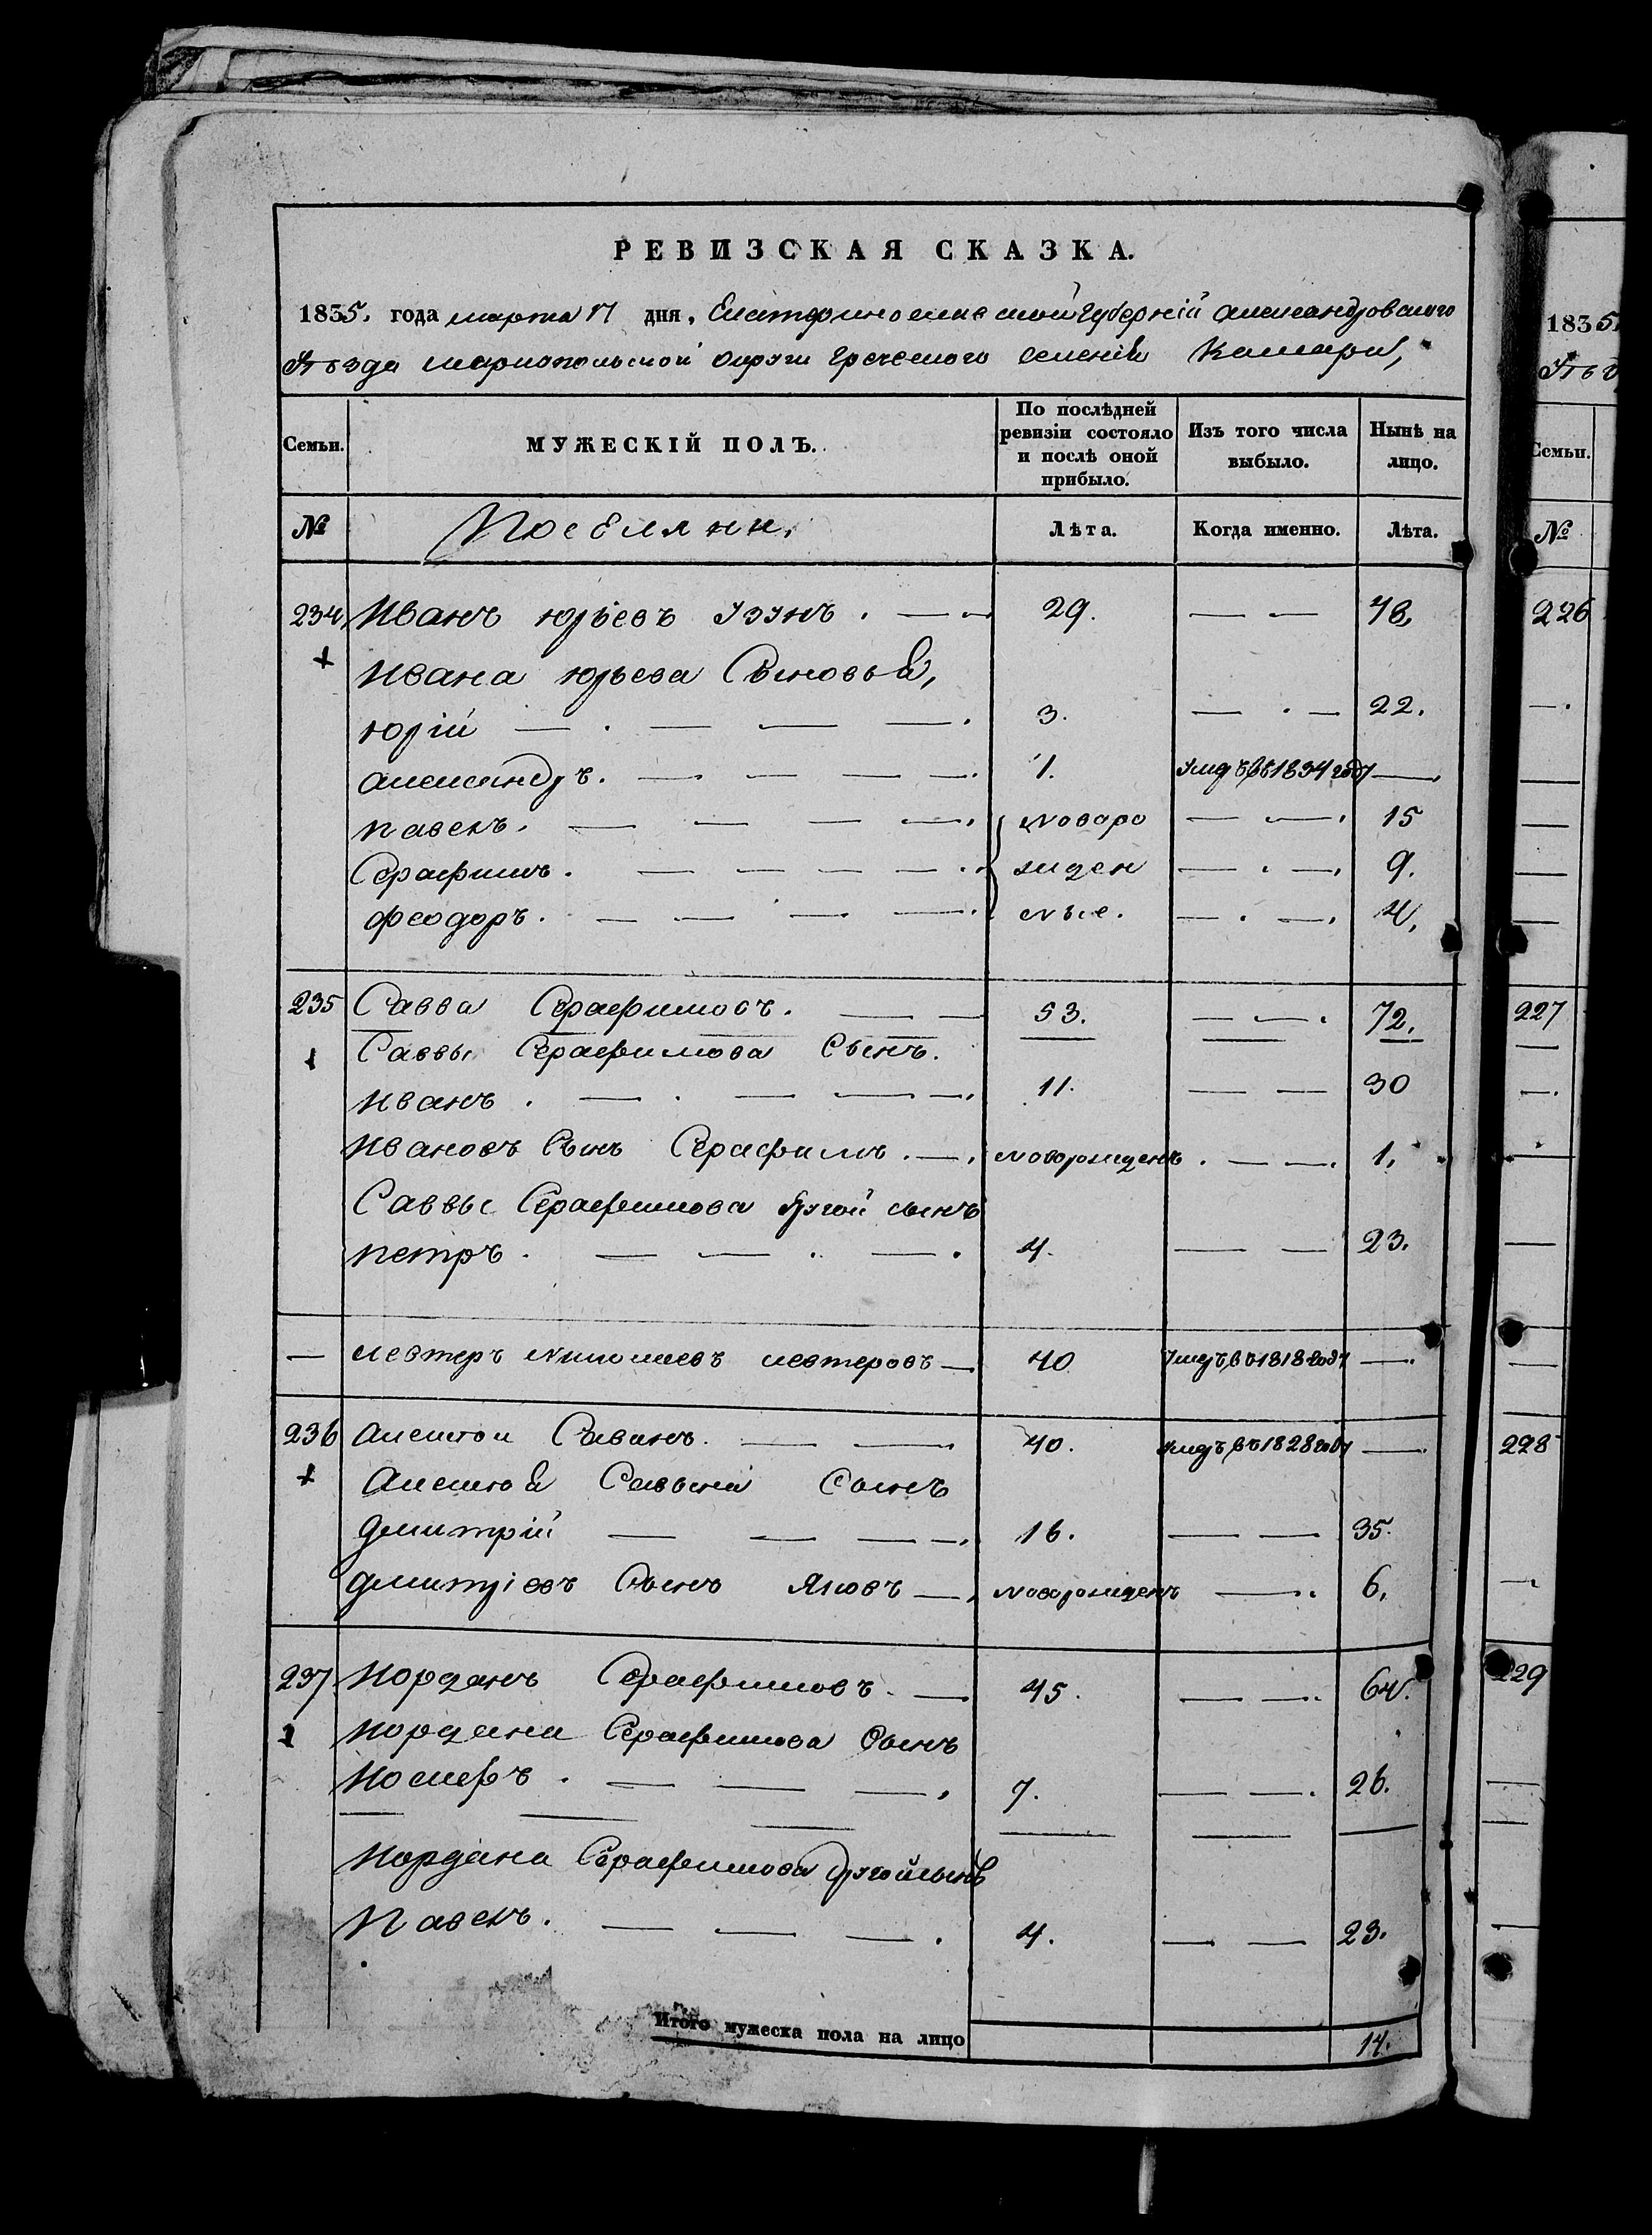 РЕВИЗСКАЯ СКАЗКА.
1835. года марта 17 дня, Екатеринославской губерніи александровского
Уѣзда мариопольской округи греческого селенія Камари,
Семьи. МУЖЕСКІЙ ПОЛЪ. По послѣдней ревизіи состояло и послѣ оной прибыло. Изъ того числа выбыло. Нынѣ на лицо.
№ Поселяни. Лѣта. Когда именно. Лѣта.
234 Иванъ юрьевъ Узунъ. — — 29. — — 48.
Ивана юрьева Сыновья,
юрій — . — — —. 3. — . — 22.
александръ. — . — — —. 1. Умръ въ 1834 году —.
павелъ. — — — —. новоро — —. 15
Серафимъ. — — — —. жден — . —. 9.
феодоръ. — — . — —. ные. — . —. 4.
235 Савва Серафимовъ. — — 53. — —. 72.
Саввы Серафимова Сынъ.
Иванъ. — . — — —. 11. — — 30
Ивановъ Сынъ Серафимъ. —. новорожденъ. — —. 1.
Саввы Серафимова другой сынъ
петръ. — — . —. 4. — — 23.
— левтеръ николаевъ левтеровъ — 40 Умръ въ 1818 году —.
236 Алексей Саванъ. — — 40. Умръ въ 1828 году —.
Алексѣя Сын
Дмитрій — — — —. 16. — — 35.
Дмитріевъ Сынъ Яковъ —. новорожденъ —. 6.
237 Иорданъ Серафимовъ. — 45. — —. 64.
Иордана Серафимова Сынъ
Иосифъ. — — —. 7. — —. 26.
Иордана Серафимова другой сынъ
Павелъ. — — —. 4. — — 23.
Итого мужеска пола на лицо 14.
1835
Уѣз
Семьи.
№
226
227
228
229